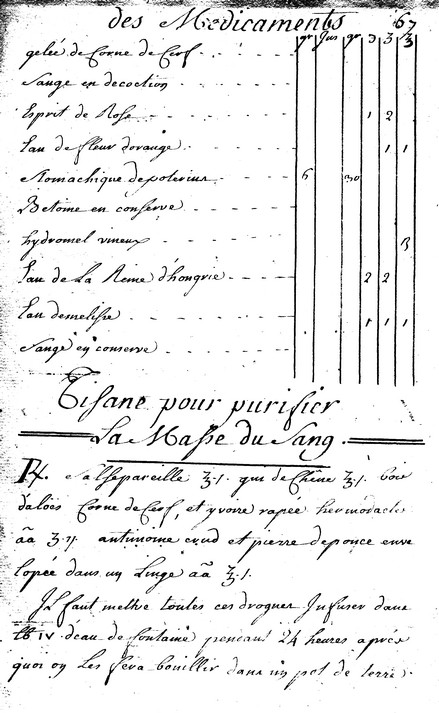 des Medicaments 67
gr Jus gr ℈ ʒ ℥
gelée de Corne de Cerf
Sauge en decoction
Esprit de Rose 1 2
Eau de fleur d'orange 1 1
Stomachique de poterius 6 30
Betoine en conserve
hydromel vineux
Eau de La Reine d'hongrie 2 2
Eau demelisse 1 1 1
Sauge en conserve
Tisane pour purifier
La Masse du Sang.
℞. Salsepareille ℥.j. guy de Chêne ℥.j. bois
daloës Corne de Cerf, et yvoire rapée hermodacte
āā ʒ.ij. antimoine crud et pierre deponce enve
lopée dans un Linge āā ℥.j.
Il faut mettre toutes ces drogues Infuser dans
lb iv d'eau de fontaine pendant 24 heures après
quoi on Les fera bouillir dans un pot de terre